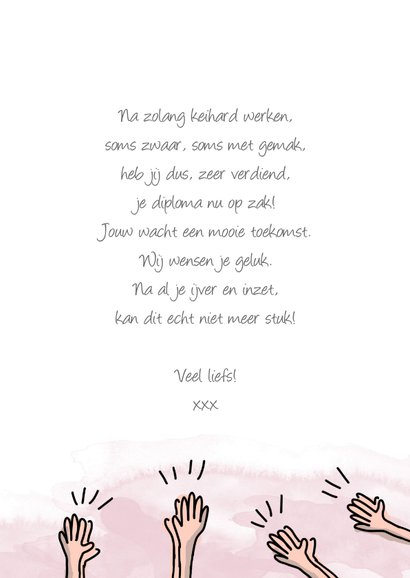 Na zolang keihard werken,
soms zwaar, soms met gemak,
heb jij dus, zeer verdiend,
je diploma nu op zak!
Jouw wacht een mooie toekomst.
Wij wensen je geluk.
Na al je ijver en inzet,
kan dit echt niet meer stuk!
Veel liefs!
xxx